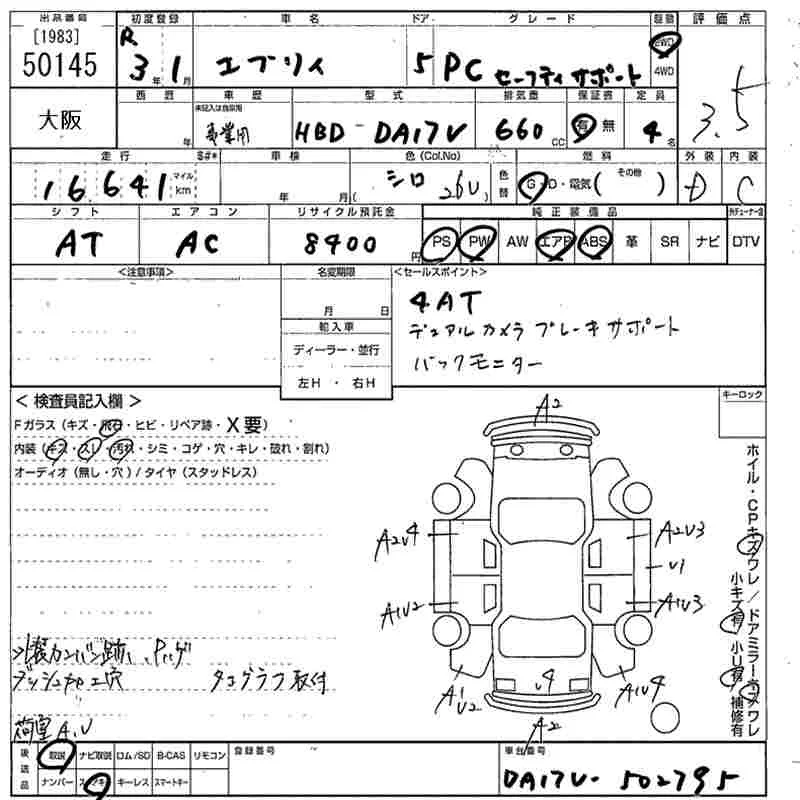 出品番号 初度登録 車名 ドア グレード 駆動 評価点
[1983] R 2WD
50145 3年 1月 エブリィ 5 PC セーフティサポート 4WD 3.5
大阪 西歴 車歴 型式 排気量 保証書 定員
未記入は自家用
年 事業用 HBD-DA17V 660cc 有・無 4名
走行 $#* 車検 色(Col.No) 燃料 外装 内装
16,641 マイル km 年 月( シロ 26U) 色替 G・D・電気( その他 ) D C
シフト エアコン リサイクル預託金 純正装備品
AT AC 8400円 PS PW AW エアB ABS 革 SR ナビ DTV
<注意事項> 名変期限 <セールスポイント>
月 日 4AT
輸入車 デュアルカメラブレーキサポート
ディーラー・並行 バックモニター
左H ・ 右H
キーロック
<検査員記入欄>
Fガラス(キズ・飛石・ヒビ・リペア跡・X要)
内装(キズ・スレ・汚れ・シミ・コゲ・穴・キレ・破れ・割れ)
オーディオ(無し・穴)/タイヤ(スタッドレス)
A2
A2U4 A2U3
U1
A1U2 A1U3
A1U2 U4 A1U4
A2
ホイル・CPキズワレ/ドアミラーキズワレ
小キズ有 小U有/補修有
外装カンバン跡
ダッシュ 穴 タコグラフ取付
荷室A.U
後送品 取説 ナビ取説 ロム/SD B-CAS リモコン 登録番号 車台番号
ナンバー スペアキー キーレス スマートキー DA17V-502795